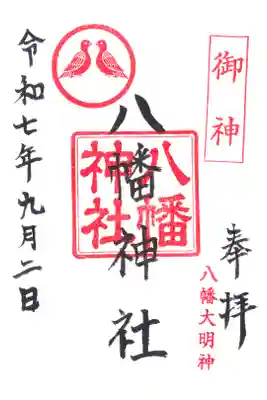 御神
奉拝
八幡大明神
八幡神社
八幡神社
令和七年九月二日